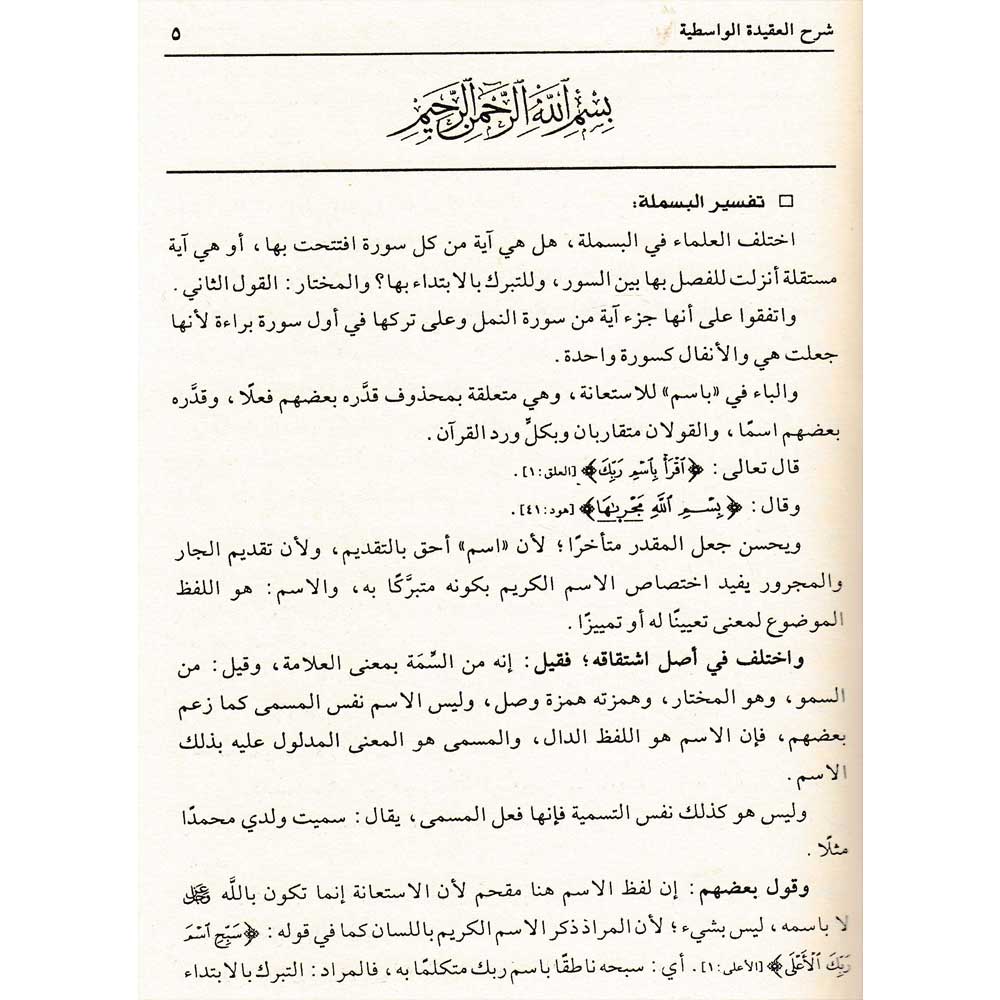 شرح العقيدة الواسطية ٥
بِسْمِ اللَّهِ الرَّحْمَنِ الرَّحِيمِ
□ تفسير البسملة:
اختلف العلماء في البسملة، هل هي آية من كل سورة افتتحت بها، أو هي آية
مستقلة أنزلت للفصل بها بين السور، وللتبرك بالابتداء بها؟ والمختار: القول الثاني.
واتفقوا على أنها جزء آية من سورة النمل وعلى تركها في أول سورة براءة لأنها
جعلت هي والأنفال كسورة واحدة.
والباء في «باسم» للاستعانة، وهي متعلقة بمحذوف قدَّره بعضهم فعلًا، وقدَّره
بعضهم اسمًا، والقولان متقاربان وبكلٍّ ورد القرآن.
قال تعالى: ﴿اقْرَأْ بِاسْمِ رَبِّكَ﴾ [العلق:١].
وقال: ﴿بِسْمِ اللَّهِ مَجْرٜىٰهَا﴾ [هود:٤١].
ويحسن جعل المقدر متأخرًا؛ لأن «اسم» أحق بالتقديم، ولأن تقديم الجار
والمجرور يفيد اختصاص الاسم الكريم بكونه متبرَّكًا به، والاسم: هو اللفظ
الموضوع لمعنى تعيينًا له أو تمييزًا.
واختلف في أصل اشتقاقه؛ فقيل: إنه من السِّمَة بمعنى العلامة، وقيل: من
السمو، وهو المختار، وهمزته همزة وصل، وليس الاسم نفس المسمى كما زعم
بعضهم، فإن الاسم هو اللفظ الدال، والمسمى هو المعنى المدلول عليه بذلك
الاسم.
وليس هو كذلك نفس التسمية فإنها فعل المسمى، يقال: سميت ولدي محمدًا
مثلًا.
وقول بعضهم: إن لفظ الاسم هنا مقحم لأن الاستعانة إنما تكون باللَّه عز وجل
لا باسمه، ليس بشيء؛ لأن المراد ذكر الاسم الكريم باللسان كما في قوله: ﴿سَبِّحِ اسْمَ
رَبِّكَ الْأَعْلَى﴾ [الأعلى:١]. أي: سبحه ناطقًا باسم ربك متكلمًا به، فالمراد: التبرك بالابتداء